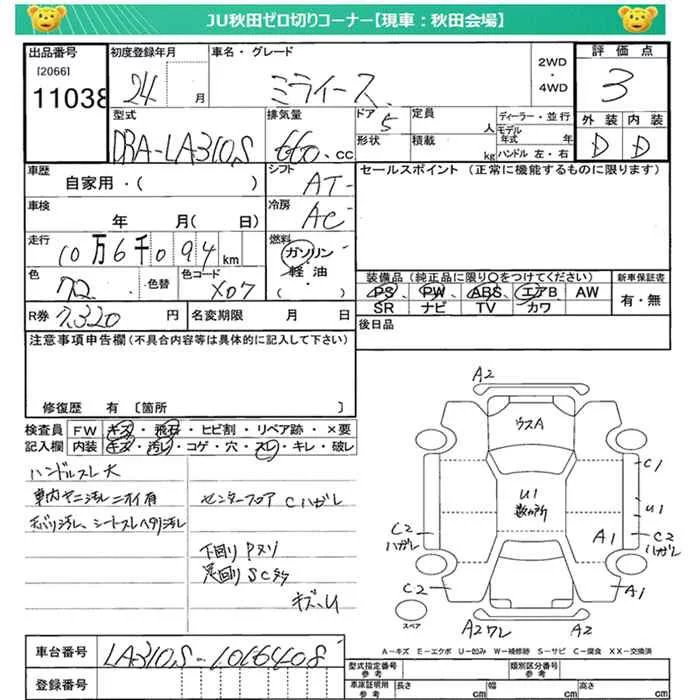 JU秋田ゼロ切りコーナー【現車：秋田会場】
出品番号
[2066]
11038
初度登録年月
24 月
車名・グレード
ミライース
2WD
・
4WD
評価点
3
外装 内装
D D
型式
DBA-LA310S
排気量
660.cc
ドア 5
形状
定員 人
積載 kg
ディーラー・並行
モデル年式 年
ハンドル 左・右
車歴
自家用・( )
シフト
AT
セールスポイント (正常に機能するものに限ります)
車検
年 月( 日)
冷房
AC
走行
10万6千094km
燃料
ガソリン
軽油
・( )
色
・色替
色コード
X07
装備品 (純正品に限り○をつけてください)
PS PW ABS エアB AW
SR ナビ TV カワ
新車保証書
有・無
R券 7,320円
名変期限 月 日
後日品
注意事項申告欄(不具合内容等は具体的に記入して下さい)
修復歴 有 〔箇所 〕
検査員
記入欄
FW キズ・飛石・ヒビ割・リペア跡・×要
内装 キズ・汚レ・コゲ・穴・スレ・キレ・破レ
ハンドルスレ大
車内ヤニ汚レニオイ有
天バリ汚レ、シートスレヘタリ汚レ
センターフロア Cハガレ
下回りPヌリ
足回りSC多
キズ、U
A2
ウスA
C1
U1
数カ所
U1
C2
ハガレ
A1
C2
ハガレ
C2
A1
スペア
A2ワレ
A2
A－キズ E－エクボ U－凹み W－補修跡 S－サビ C－腐食 XX－交換済
車台番号
LA310S-1066408
登録番号
型式指定番号
参考
類別区分番号
参考
車庫証明用
参考
長さ cm
幅 cm
高さ cm